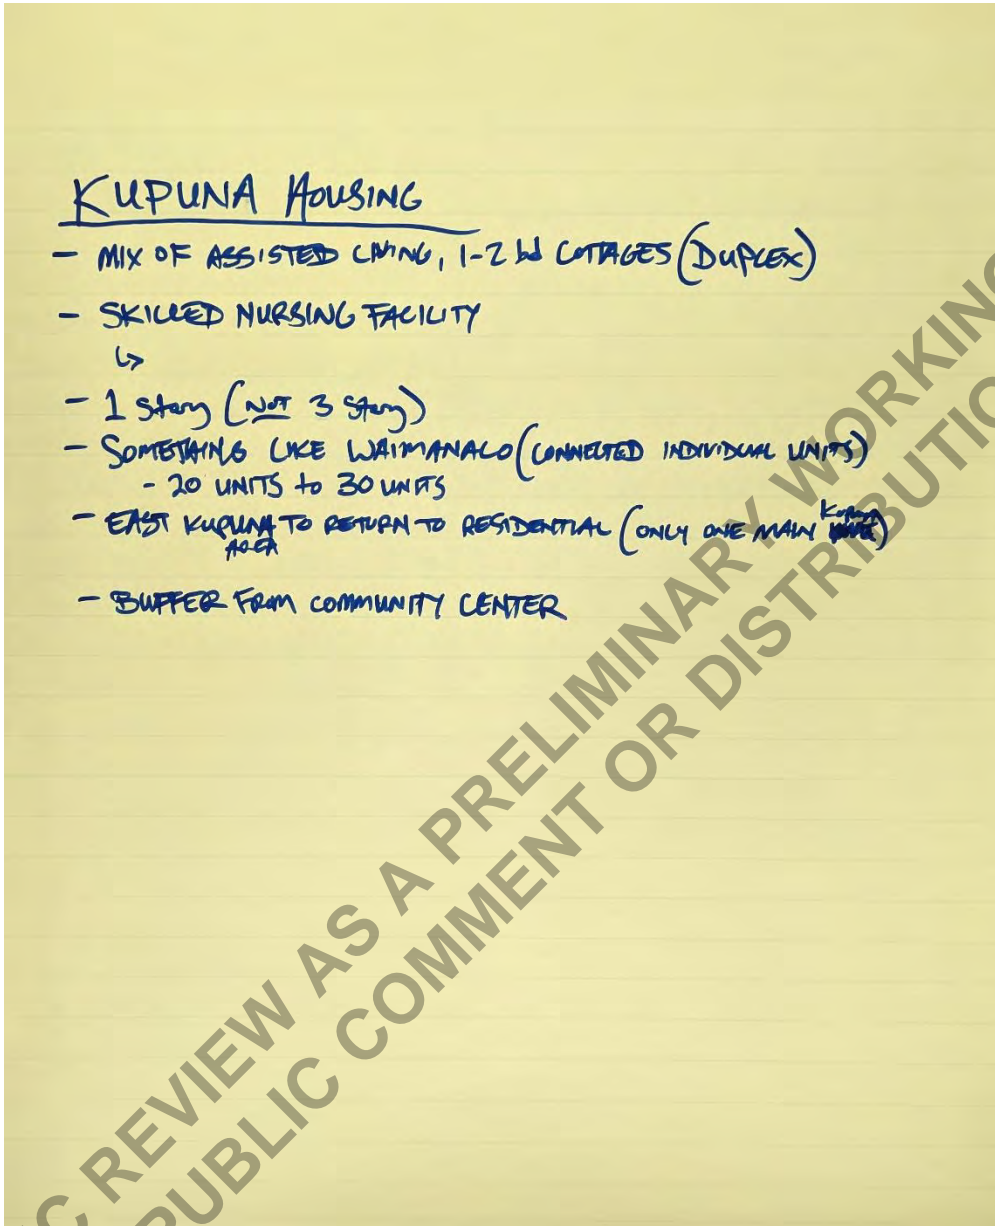 KUPUNA HOUSING
- MIX OF ASSISTED LIVING, 1-2 bd COTTAGES (DUPLEX)
- SKILLED NURSING FACILITY
↳
- 1 Story (NOT 3 Story)
- SOMETHING LIKE WAIMANALO (CONNECTED INDIVIDUAL UNITS)
- 20 UNITS to 30 UNITS
- EAST KUPUNA AREA TO RETURN TO RESIDENTIAL (ONLY ONE MAIN Kupuna)
- BUFFER FROM COMMUNITY CENTER
C REVIEW AS A PRELIMINARY WORKING
PUBLIC COMMENT OR DISTRIBUTIO